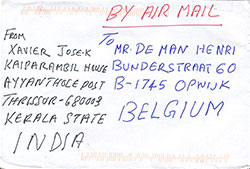 BY AIR MAIL
From
XAVIER JOSE.K
KAIPARAMBIL HOUSE
AYYANTHOLE POST
THRISSUR-680003
KERALA STATE
INDIA
To
MR. DE MAN HENRI
BUNDERSTRAAT 60
B-1745 OPWIJK
BELGIUM